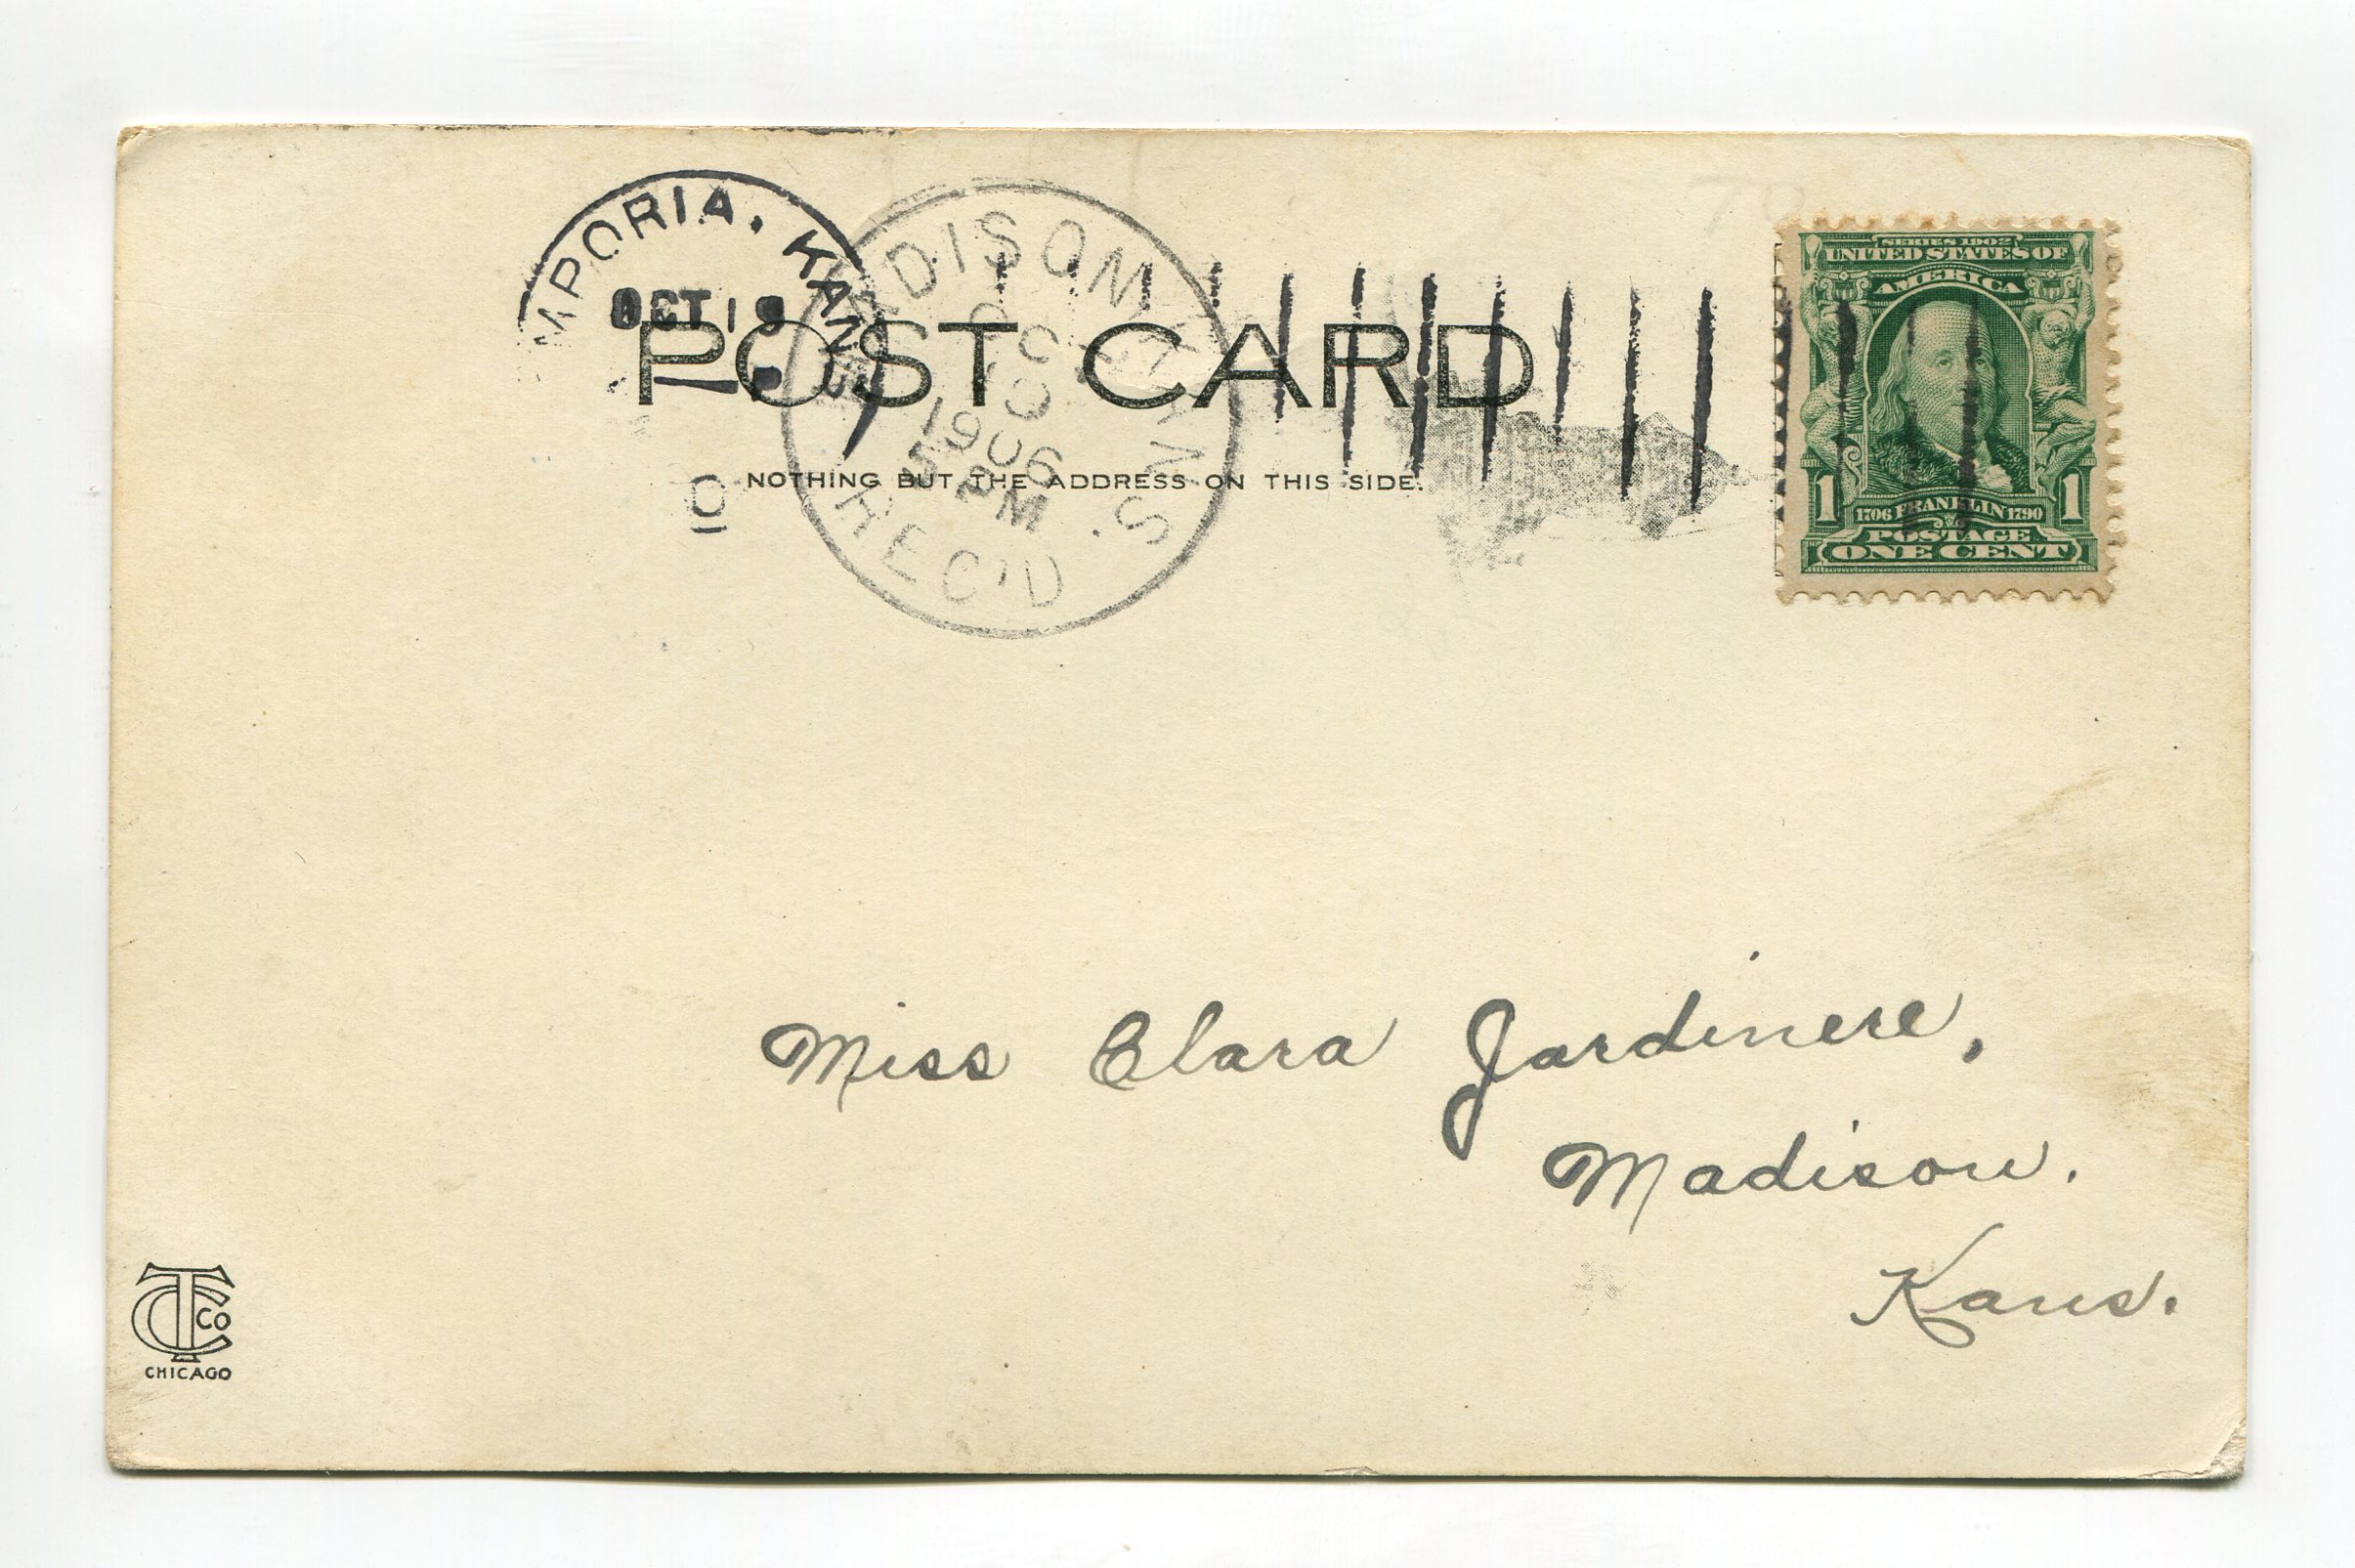 MPORIA, KANS
OCT 1
MADISON, KANS.
1906
5 PM
REC'D
POST CARD
NOTHING BUT THE ADDRESS ON THIS SIDE.
SERIES 1902
UNITED STATES OF
AMERICA
1 1706 FRANKLIN 1790 1
POSTAGE
ONE CENT
Miss Clara Jardinere,
Madison.
Kans.
CTCo
CHICAGO